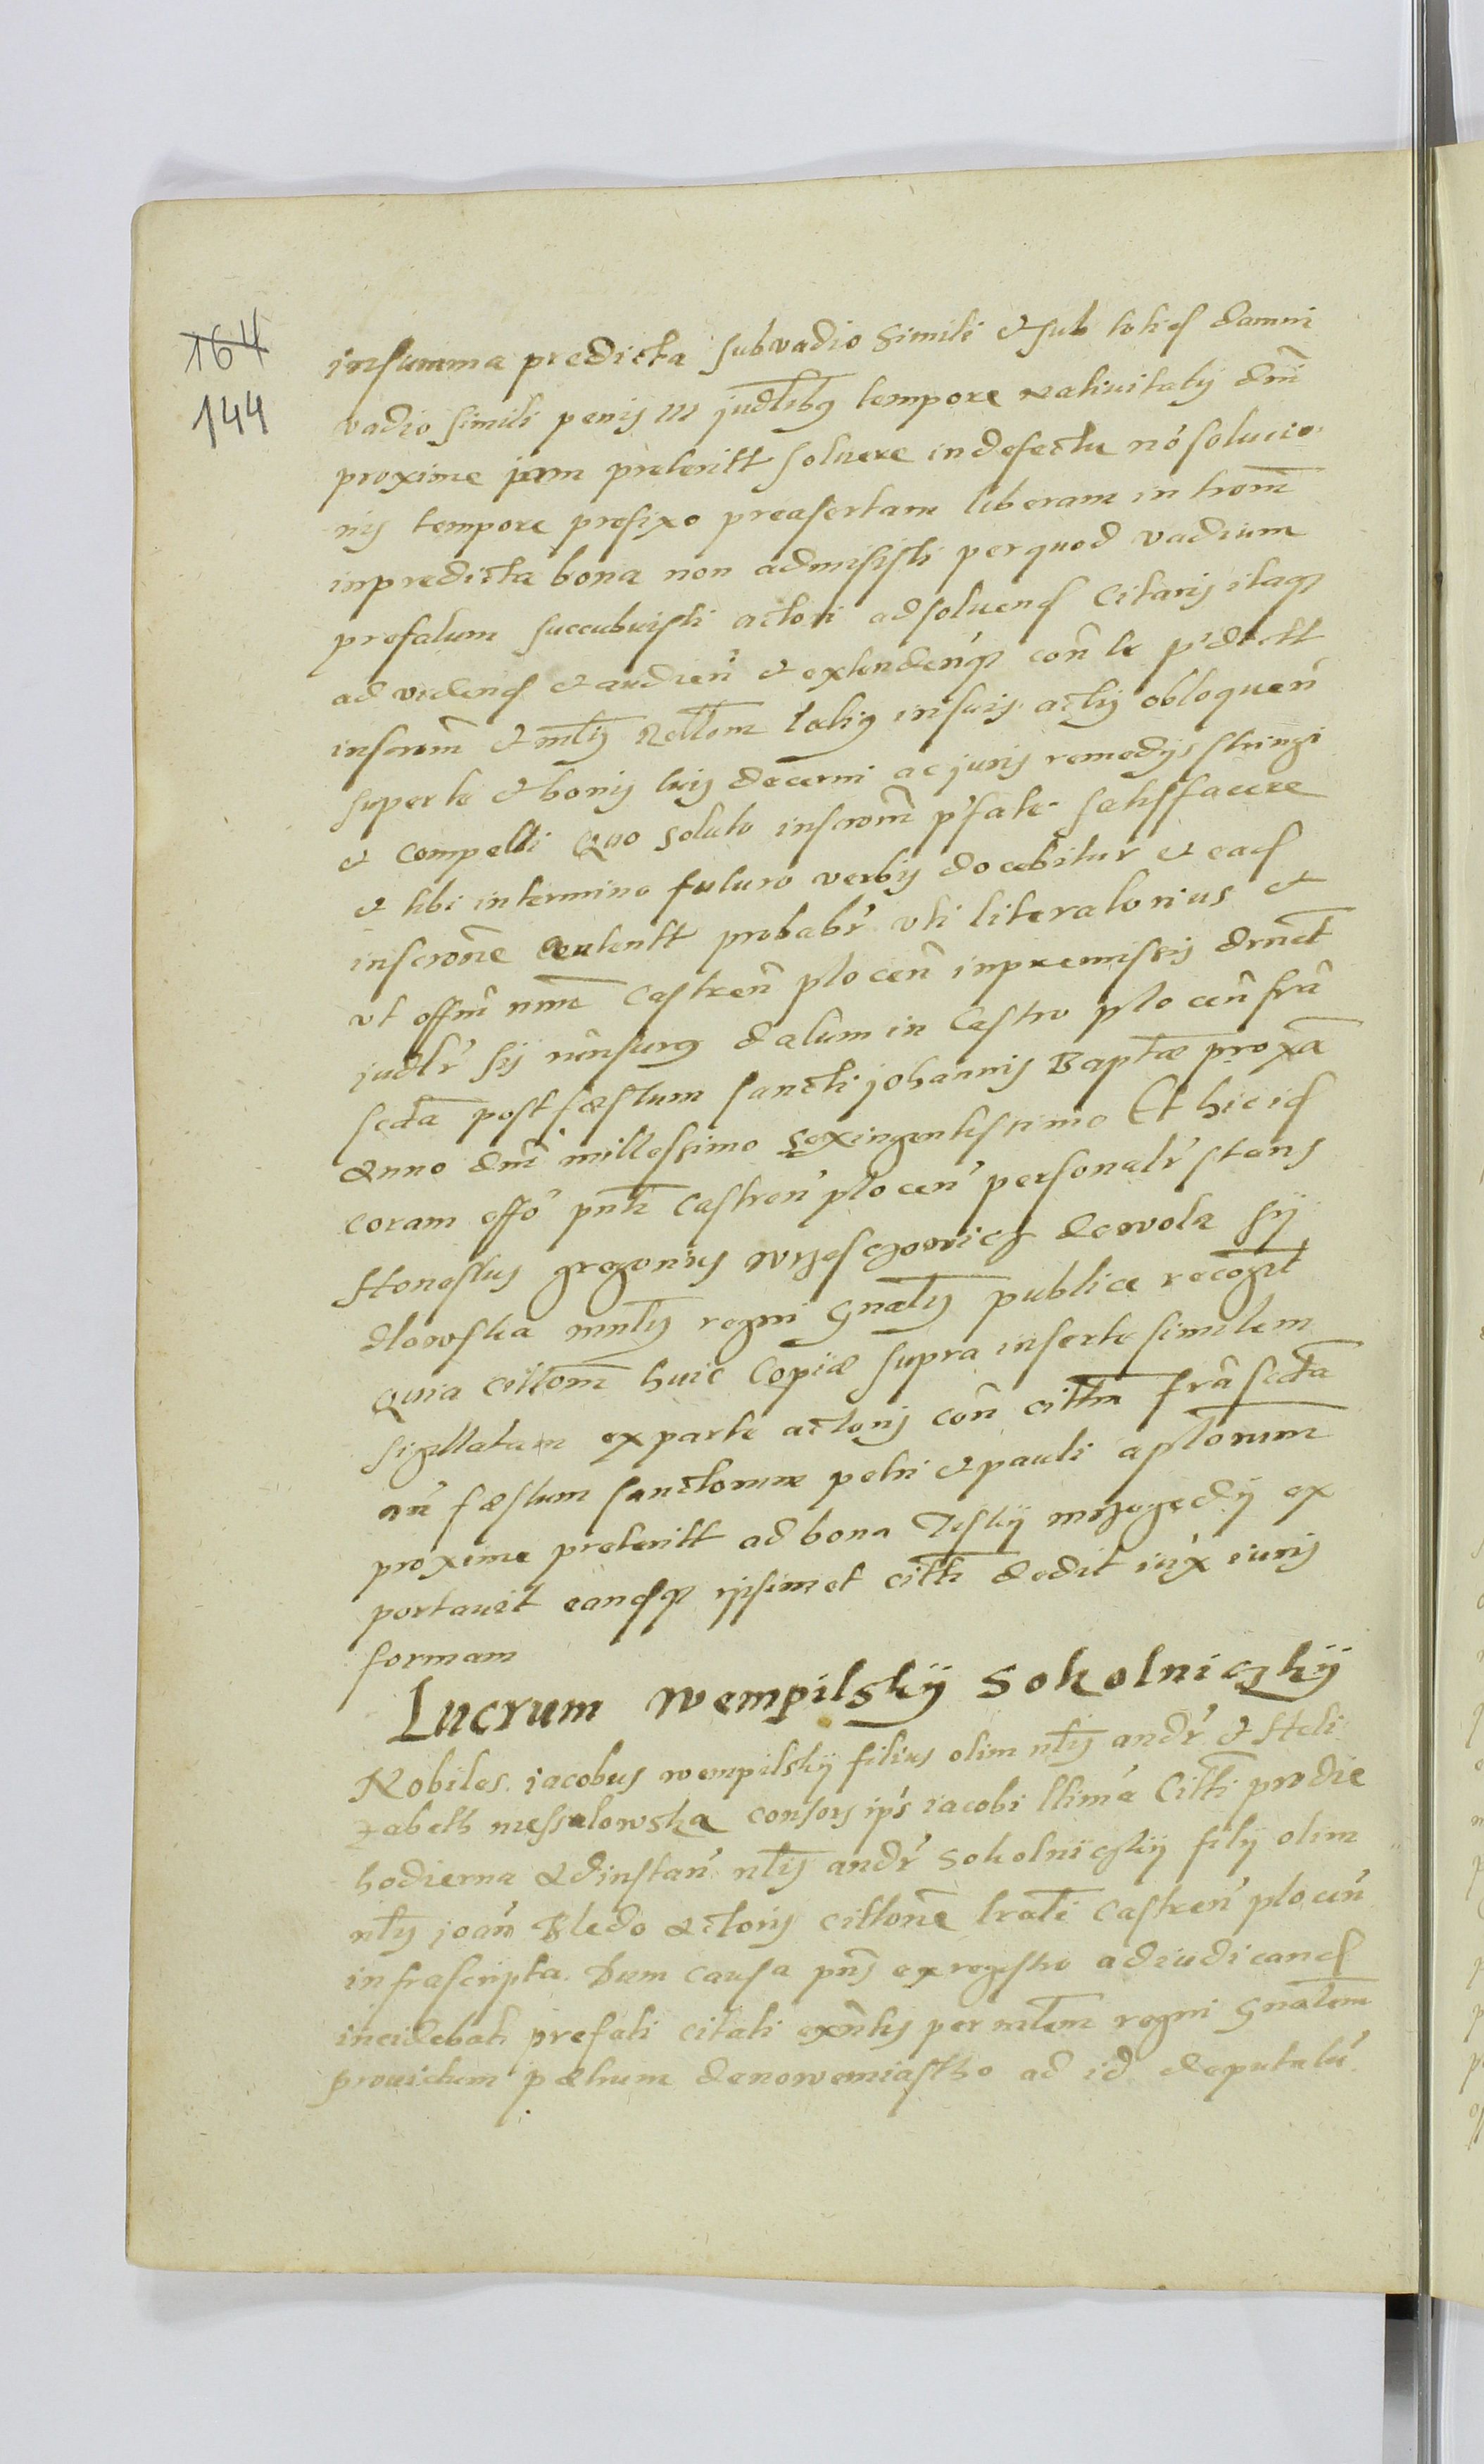 164
144
insumma predicta subvadio simili et sub toties damni
vadio simili penis III judlibus tempore Nativitatis dni
proxime jam preteritt solvere indefectu nō solucio
nis tempore prefixo preasertam liberam in trom
inpredicta bona non admisisti perquod vadium
prefatum succubuisti actori adsolvend Citaris itaq
ad videnđ et audien et extendenq con te pdictt
inscrom et mtis Rottom talis insuis actis obloquen
super te et bonis tuis decerni ac juris remedys stringi
et compelli Quo soluto inscrom pfate satisfacere
et tibi intermino futuro verbis docebitur et ead
inscrone probabr uti literatorius et
ut offm nim Castren plocen inpremissis drnet
judlr sis rūnsurus datum in Castro plocen fra
scda post fæstum sancti johannis Baptæ proxa
Anno dni millessimo sexingentissimo Et hic id
coram offo pnti Castren plocen personalr stans
Honestus gregorius wrzesczowicz dewola sy
dlowska mnlis regni Gnalis publice recogt
Quia cittom huic Copiæ supra inserte similem
sigillatam exparte actoris con cittm fra scda
an fæstum sanctorum petri et pauli aplorum
proxime preteritt ad bona Tisky mrzogedy ex
portavit eandq ipsimet citti dedit iux iuris
formam
Lucrum wempilsky sokolniczky
Nobiles jacobus wempilsky filius olim nlis andr et Heli
zabeth messalowska consors ips iacobi llima Citti prodie
hodierna Adinstan nlis andr sokolniczky fily olim
nlis joan Bledo actoris cittone trati Castren plocen
infrascripta. Dum causa pns exregestro adiudicand
incidebat prefati citati exntis per mlem regni Gnalem
providum petrum denowemiastho ad id deputatu